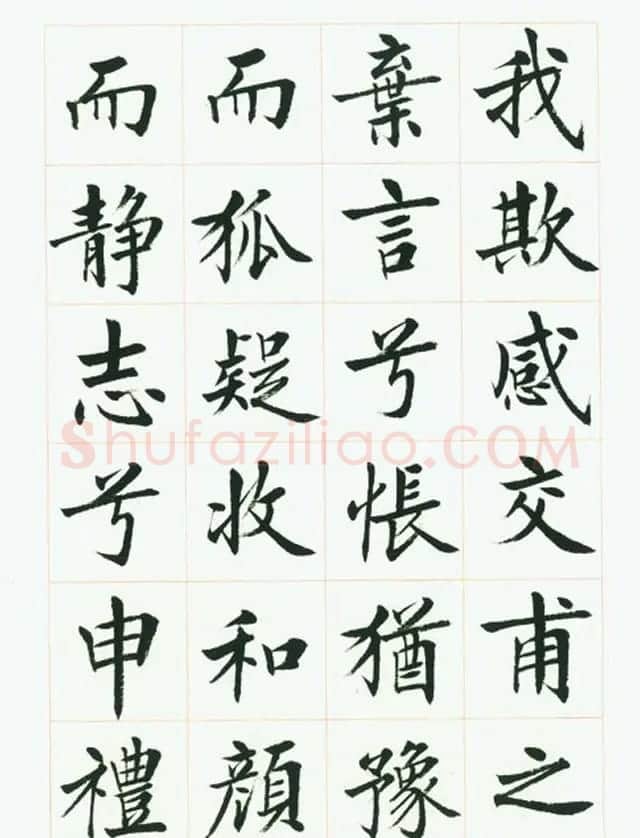 我欺感交甫之
棄言兮悵猶豫
而狐疑收和顔
而静志兮申禮
Shufaziliao.COM